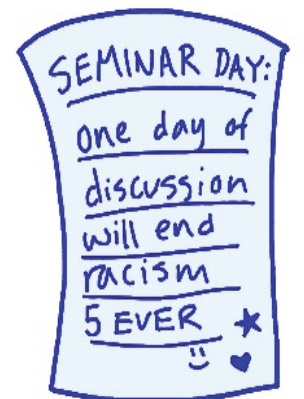 SEMINAR DAY:
one day of
discussion
will end
racism
5 EVER